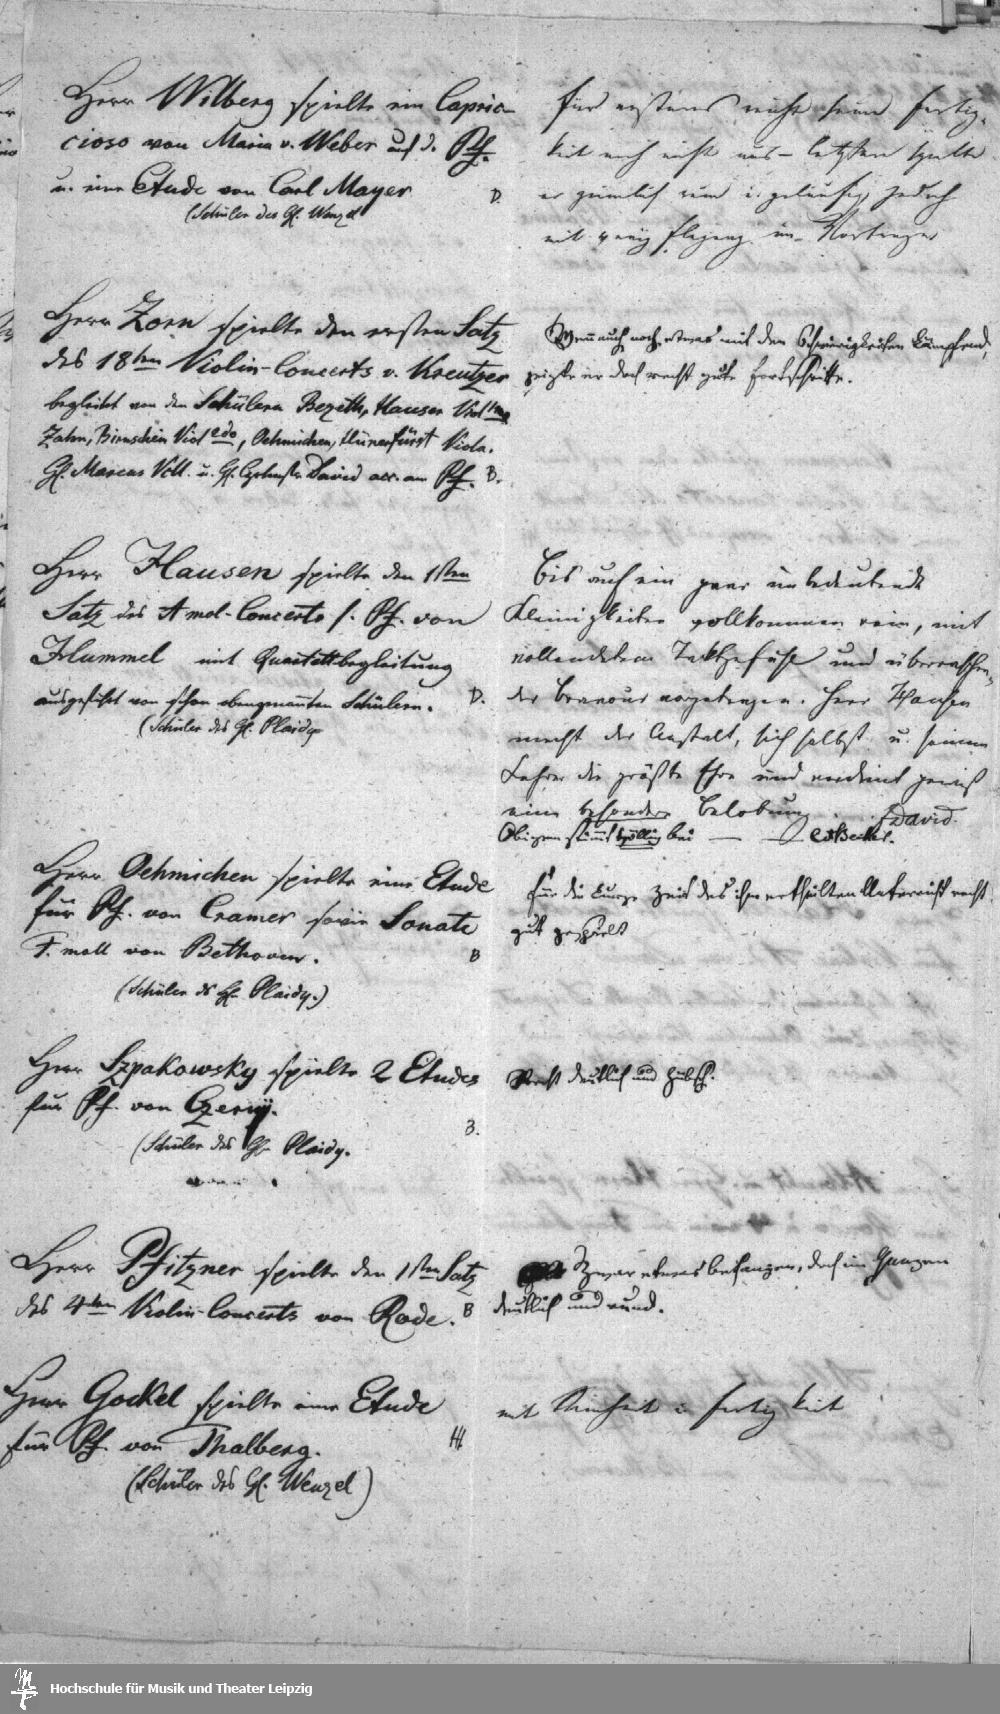 Herr Wilberg spielte ein Capric-
cioso von Maria v. Weber auf d. Pf.
u. eine Etude von Carl Mayer D.
(Schüler des H. Wenzel
für erstens reicht seine Fertig-
keit noch nicht aus – letztere spielte
er ziemlich rein u. geläufig jedoch
mit wenig im Vortrage
Herr Zorn spielte den ersten Satz
des 18ten Violin-Concerts v. Kreutzer
begleitet von den Schülern Hauser Viol
Zahn, Viol 2do, Oehmichen, Hünerfürst Viola.
H. Marcus Vcll. u. H. David acc. am Pf. B.
Wenn auch noch etwas mit den Schwierigkeiten kämpfend,
zeigte er doch recht gute Fortschritte.
Herr Hausen spielte den 1sten
Satz des A mol-Concerts f. Pf. von
Hummel mit Quartettbegleitung
ausgeführt von schon obengenannten Schülern. D.
(Schüler des H. Plaidy
Bis auf ein paar unbedeutende
Kleinigkeiten vollkommen rein, mit
vollendetem Taktgefühl und überraschen-
der Bravour vorgetragen. Herr Hausen
macht der Anstalt, sich selbst u. seinem
Lehrer die größte Ehre und verdient gewiß
eine besondere Belobung. David.
Obigem stimmt völlig bei — CFBecker.
Herr Oehmichen spielte eine Etude
für Pf. von Cramer sowie Sonate
F. moll von Bethoven. B
(Schüler ds H. Plaidy.)
für die kurze Zeit des ihm ertheilten Unterricht recht
gut gespielt
Herr Szpakowsky spielte 2 Etudes
für Pf. von Czerny.
(Schüler des H. Plaidy. B.
Recht deutlich und hübsch.
Herr Pfitzner spielte den 1sten Satz
des 4ten Violin-Concerts von Rode. B
Zwar etwas befangen, doch im Ganzen
deutlich und rund.
Herr Gockel spielte eine Etude
für Pf. von Thalberg. H.
(Schüler des H. Wenzel)
mit Reinheit u Fertigkeit
Hochschule für Musik und Theater Leipzig